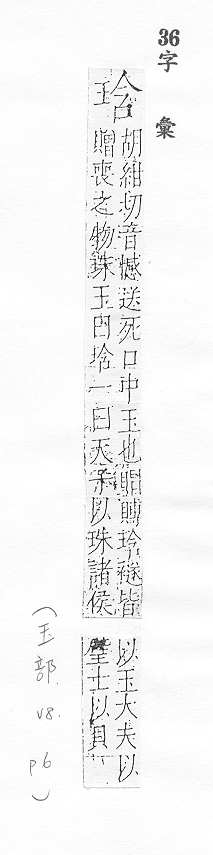 36
字彙
琀
胡紺切音憾送死口中玉也賵賻琀襚皆
贈喪之物珠玉曰琀一曰天子以珠諸侯
以玉大夫以
璧士以貝
(玉部. v8. p6)